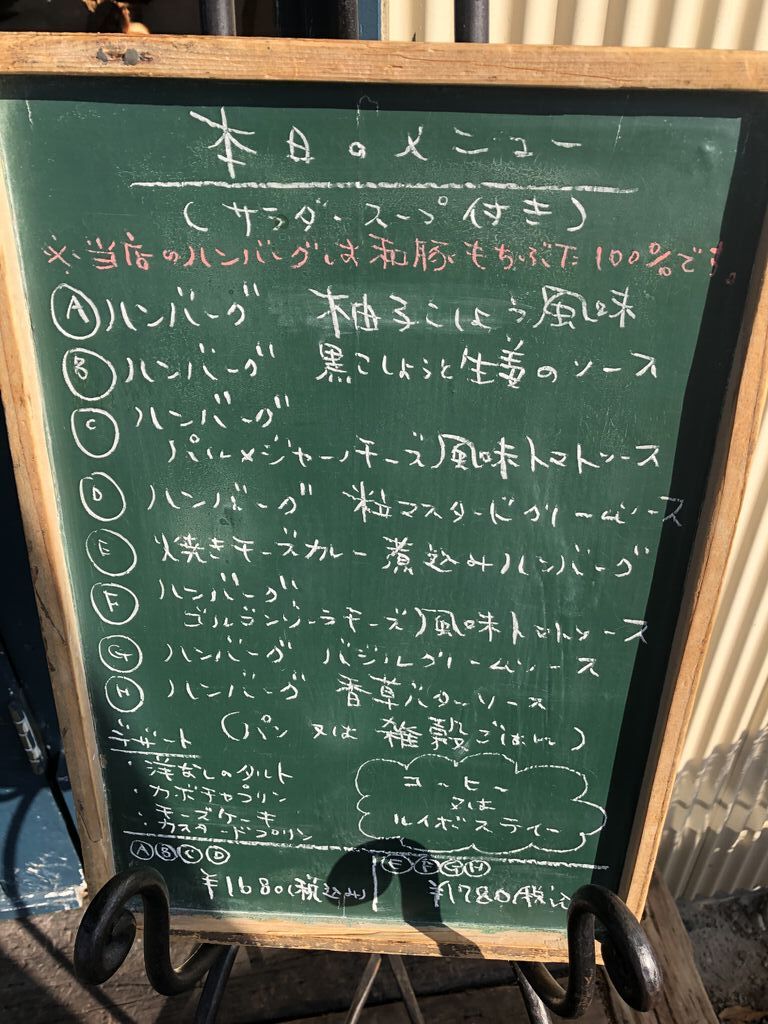 本日のメニュー
(サラダ・スープ付き)
※当店のハンバーグは和豚もちぶた100%です。
Ⓐ ハンバーグ 柚子こしょう風味
Ⓑ ハンバーグ 黒こしょうと生姜のソース
Ⓒ ハンバーグ
パルメジャーノチーズ風味トマトソース
Ⓓ ハンバーグ 粒マスタードクリームソース
Ⓔ 焼きチーズカレー煮込みハンバーグ
Ⓕ ハンバーグ
ゴルゴンゾーラチーズ風味トマトソース
Ⓖ ハンバーグ バジルクリームソース
Ⓗ ハンバーグ 香草バターソース
(パン又は雑穀ごはん)
デザート
・洋なしのタルト
・カボチャプリン
・チーズケーキ
・カスタードプリン
コーヒー
又は
ルイボスティー
ⒶⒷⒸⒹ
¥1680(税込み)
ⒺⒻⒼⒽ
¥1780(税込